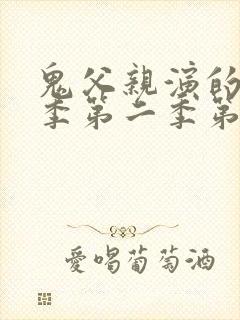 鬼父親演的
季第二季第
愛喝葡萄酒